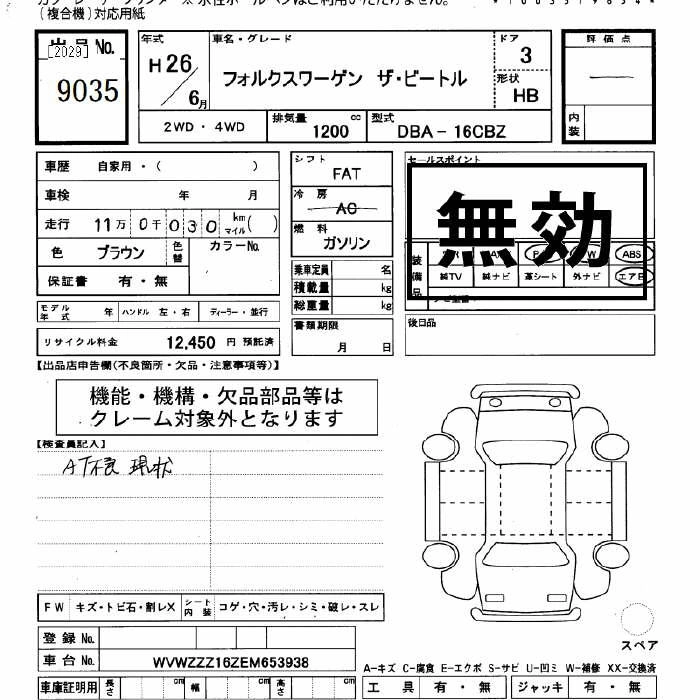 (複合機)対応用紙
出品No.
[2029]
9035
年式
H26
6月
車名・グレード
フォルクスワーゲン ザ・ビートル
ドア
3
形状
HB
評価点
内装
2WD・4WD
排気量 cc
1200
型式
DBA－16CBZ
車歴 自家用・( )
車検 年 月
走行 11万 0千 030 km マイル( )
色 ブラウン 色替 カラーNo.
保証書 有・無
モデル年式 年 ハンドル 左・右 ディーラー・並行
リサイクル料金 12,450 円 預託済
シフト
FAT
冷房
AC
燃料
ガソリン
乗車定員 名
積載量 kg
総重量 kg
書類期限
月 日
セールスポイント
無効
装備品
ABS
純TV 純ナビ 革シート 外ナビ エアB
後日品
【出品店申告欄(不良箇所・欠品・注意事項等)】
機能・機構・欠品部品等は
クレーム対象外となります
【検査員記入】
AT不良 現状
FW キズ・トビ石・割レX シート内装 コゲ・穴・汚レ・シミ・破レ・スレ
登録No.
車台No. WVWZZZ16ZEM653938
車庫証明用 長さ cm 幅 cm 高さ cm
スペア
A-キズ C-腐食 E-エクボ S-サビ U-凹ミ W-補修 XX-交換済
工具 有・無 ジャッキ 有・無